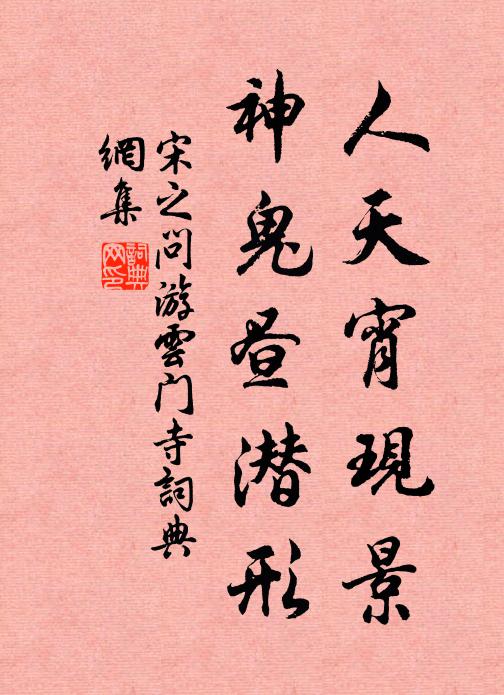 人天宵現景
神鬼昼潜形
宋之问游雲门寺詞典
網集
詞典
网印